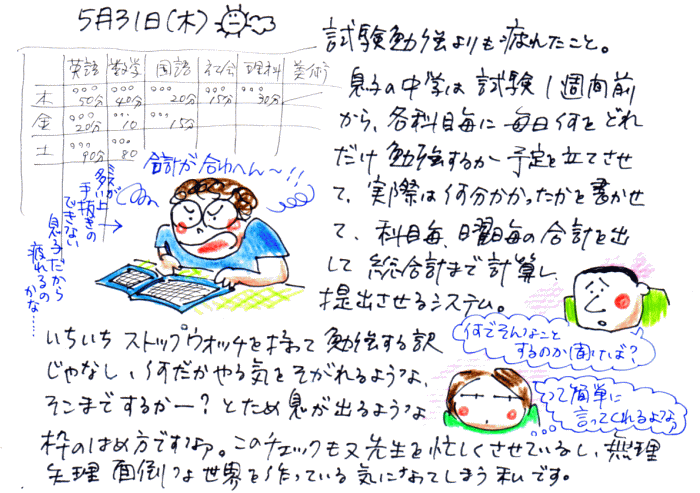 5月31日(木)
英語 数学 国語 社会 理科 美術
木 50分 40分 20分 15分 30分
金 20分 10 15分
土 90分 80
合計が合わへん〜!!
手抜きの
できない
息子だから
疲れるの
かな……
試験勉強よりも疲れたこと。
息子の中学は試験1週間前
から、各科目毎に毎日何をどれ
だけ勉強するか予定を立てさせ
て、実際は何分かかったかを書かせ
て、科目毎、日曜毎の合計を出
して総合計まで計算し、
提出させるシステム。
何でそんなこと
するのか聞けば?
って簡単に
言ってくれるよなァ
いちいちストップウォッチを持って勉強する訳
じゃなし、何だかやる気をそがれるような、
そこまでするかー?とため息が出るような
枠のはめ方ですなァ。このチェックも又先生を忙しくさせているし、無理
矢理面倒な世界を作っている気になってしまう私です。